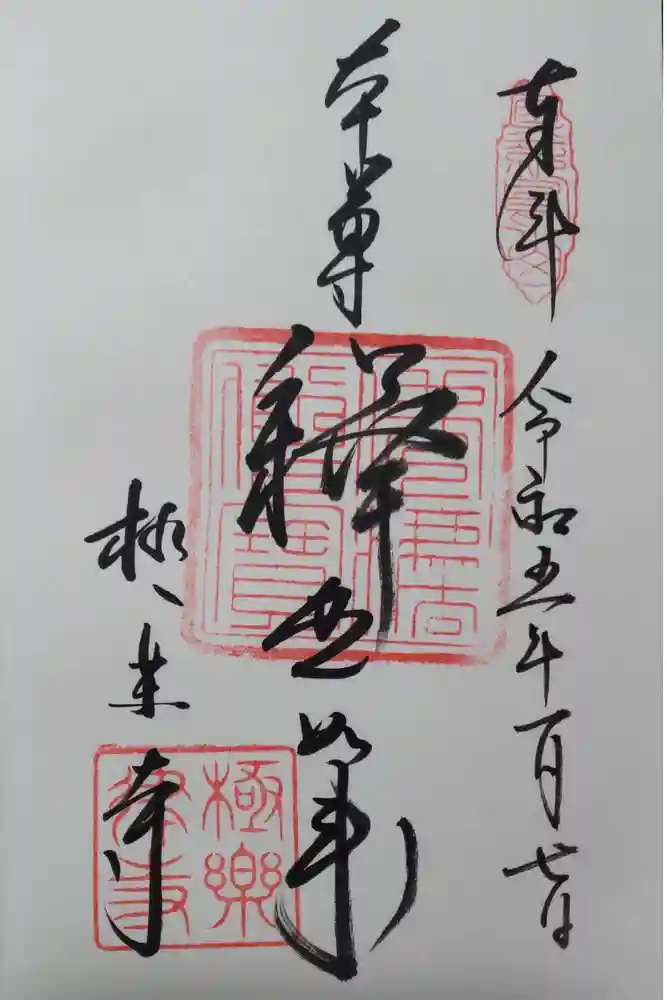 奉拝
令和五年一月七日
本尊
釋迦如来
極楽寺
極樂
律寺